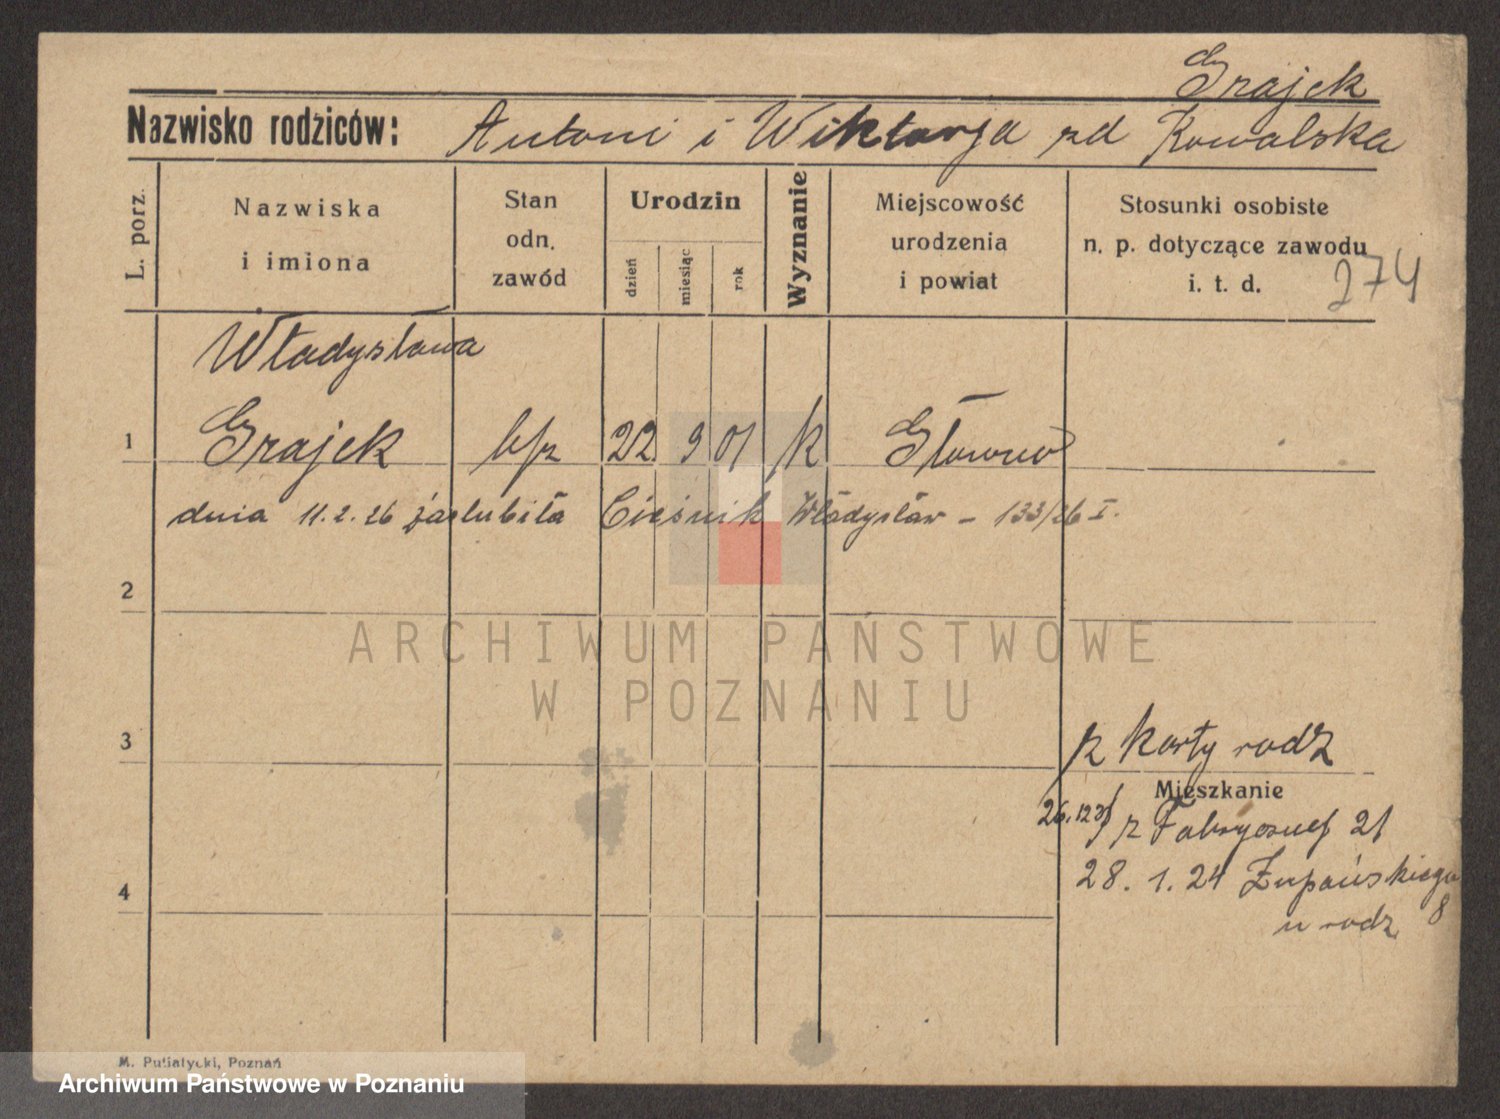 Grajek
Nazwisko rodziców: Antoni i Wiktorja zd Kowalska
L. porz.
Nazwiska
i imiona
Stan
odn.
zawód
Urodzin
dzień
miesiąc
rok
Wyznanie
Miejscowość
urodzenia
i powiat
Stosunki osobiste
n. p. dotyczące zawodu
i. t. d.
274
Władysława
1 Grajek bfz 22 9 01 k Główno
dnia 11.2.26 zaślubiła Cieśnik Władysław – 133/26 I.
2
ARCHIWUM PAŃSTWOWE
W POZNANIU
3
z karty rodz
Mieszkanie
z 21
28.1.24 Żupańskiego
8
u rodz
4
M. Putiatycki, Poznań
Archiwum Państwowe w Poznaniu